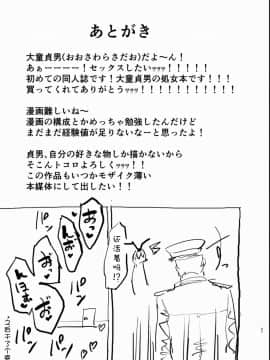 あとがき
大童貞男(おおさわらさだお)だよ~ん!
あぁーーーー!セックスしたいッッッ!!!!!
初めての同人誌です!大童貞男の処女本です!!!!
買ってくれてありがとうッッッ!!!!!!!!!
漫画難しいね~
漫画の構成とかめっちゃ勉強したんだけど
まだまだ経験値が足りないなーと思ったよ!
貞男、自分の好きな物しか描かないから
そこんトコロよろしくぅ!!!!
この作品もいつかモザイク薄い
本媒体にして出したい!!
还活着吗!?
あっ
パン
パン
パン